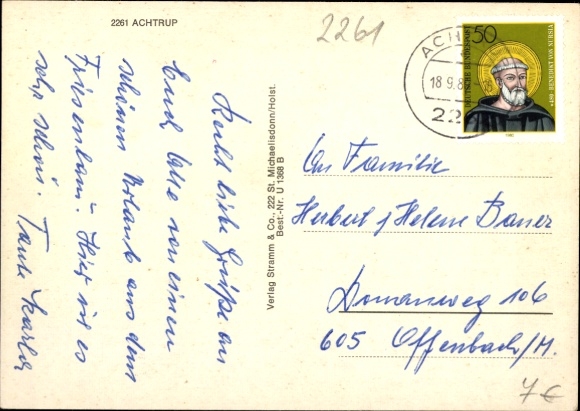 2261 ACHTRUP
2261
Recht liebe Grüße an
Euch Alle von einem
schönen Urlaub aus dem
Friesenland. Hier ist es
sehr schön. Tante Karla
Verlag Stramm & Co., 222 St. Michaelisdonn/Holst.
Best.-Nr. U 1368 B
ACH
18.9.8
22
50
DEUTSCHE BUNDESPOST
480 BENEDIKT VON NURSIA
An Familie
Herbert & Helene Bauer
Domanweg 106
605 Offenbach/M.
7€